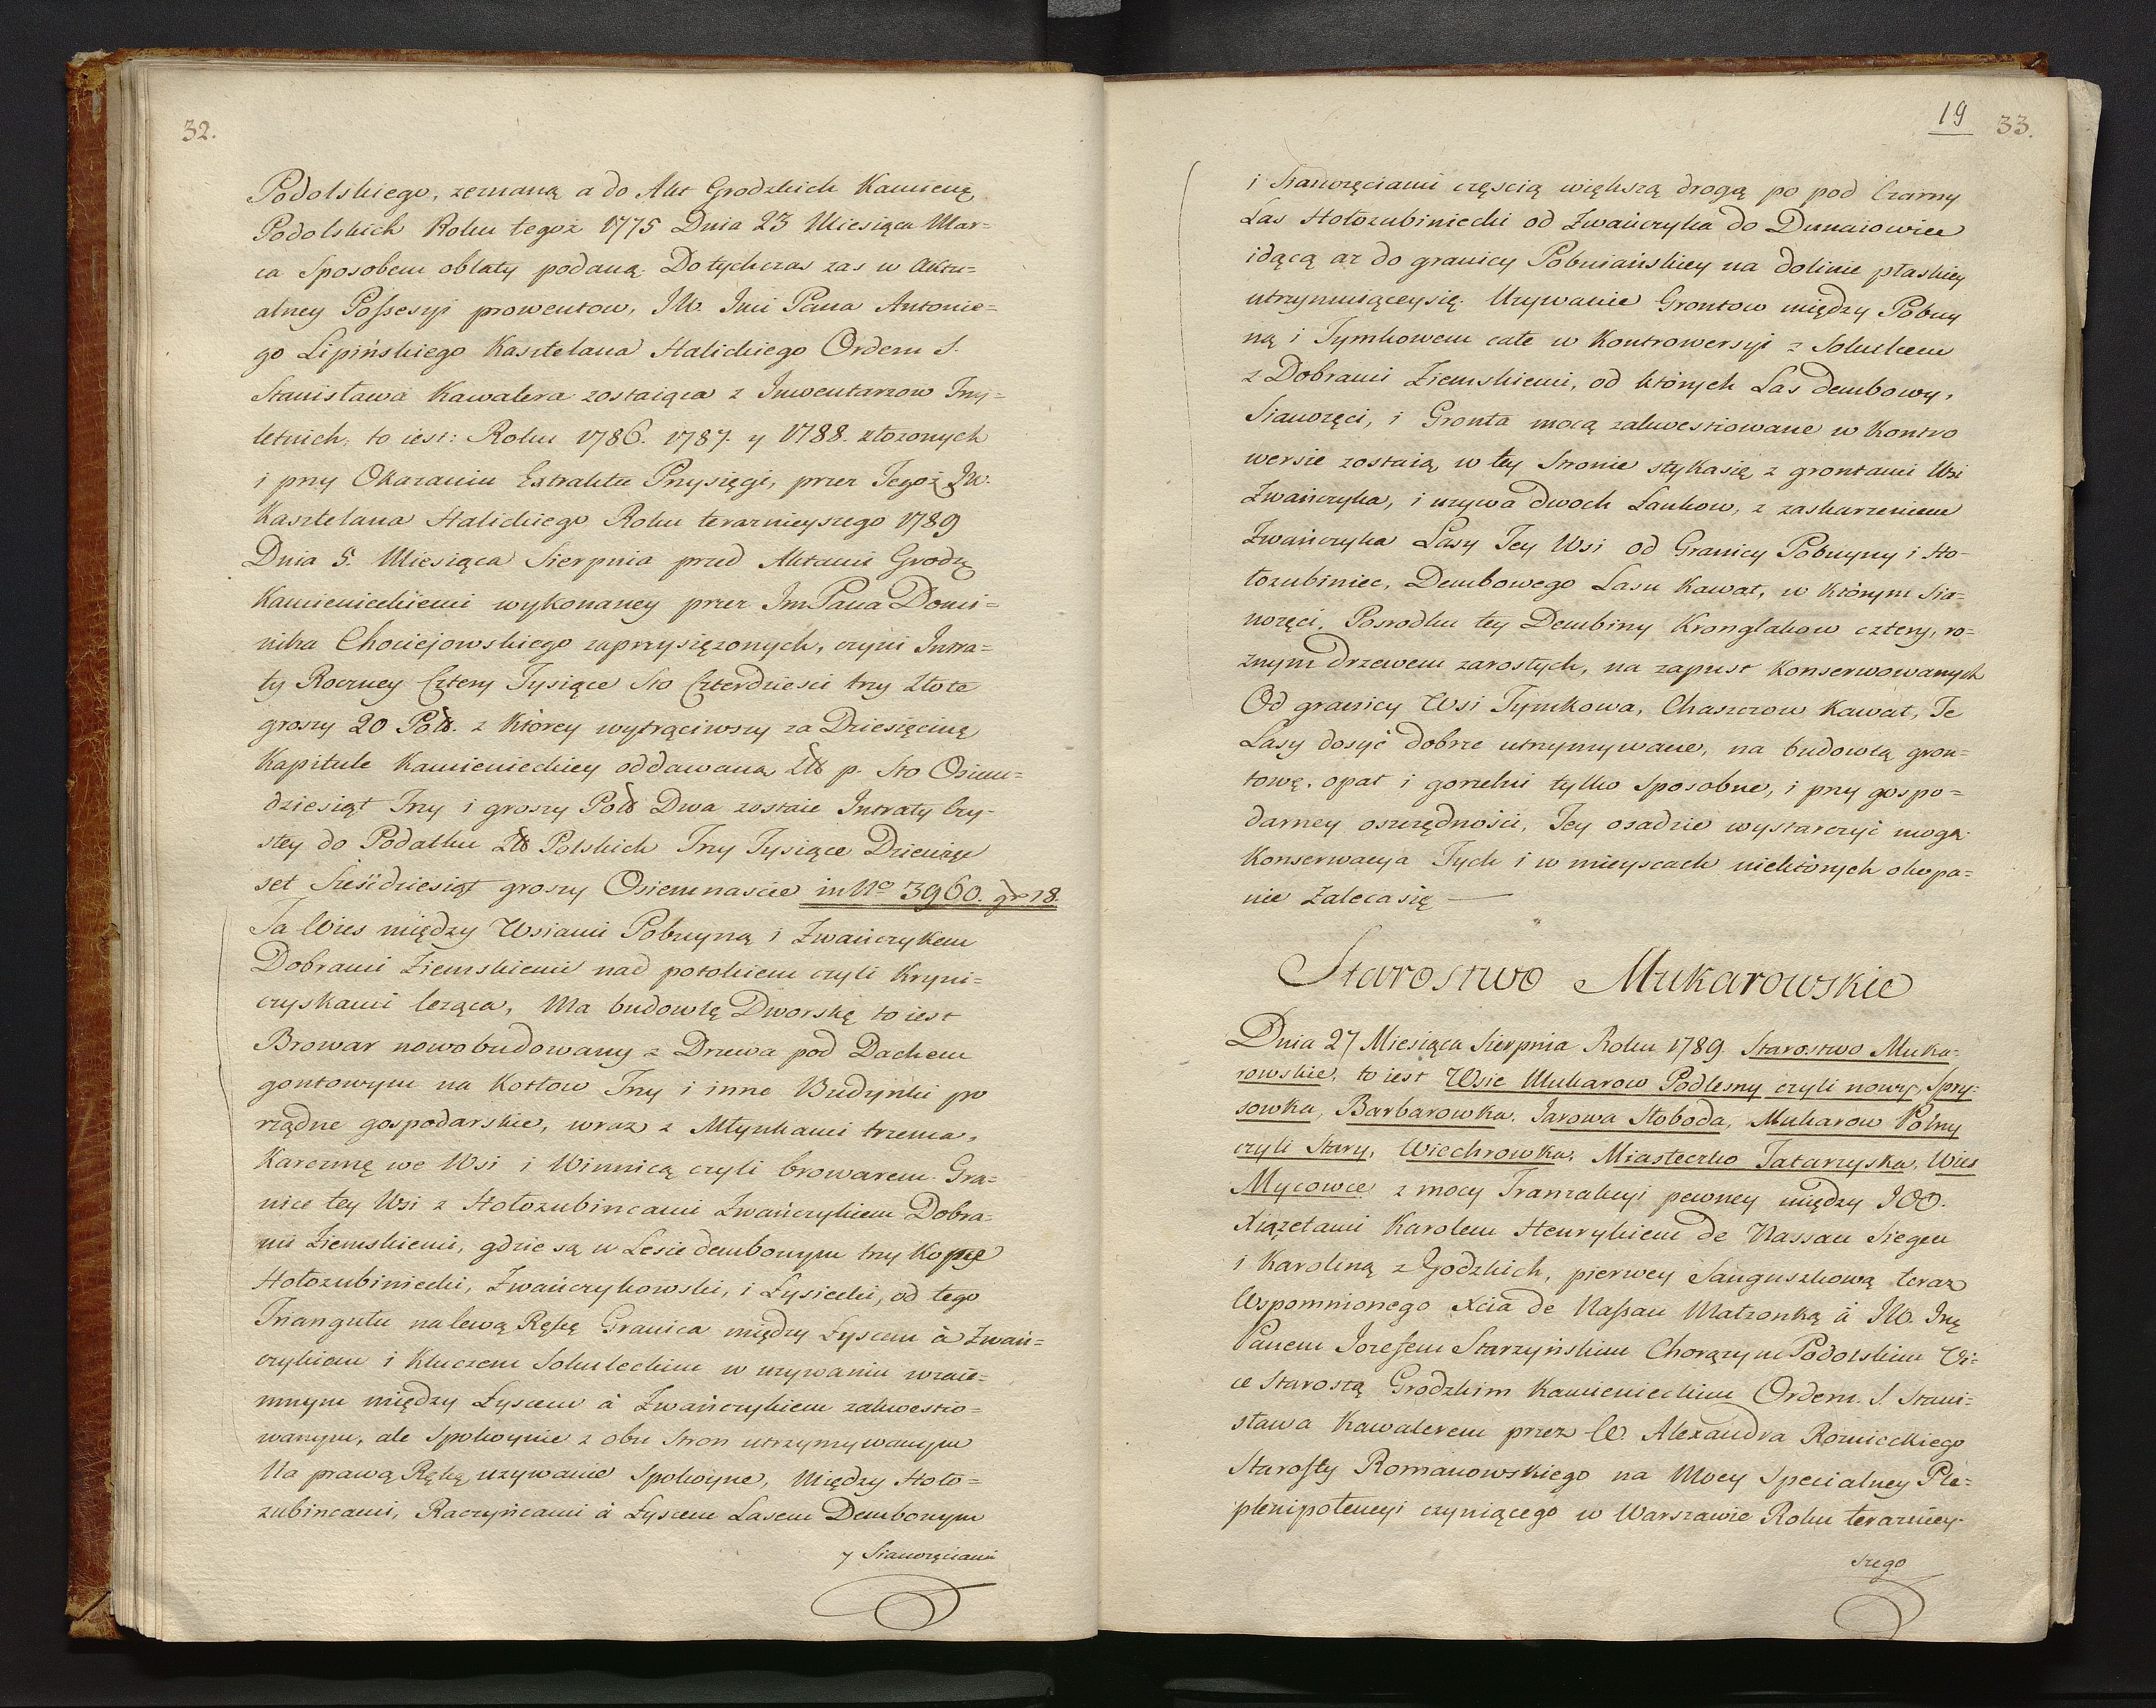 32.
Podolskiego, zeznaną a do Akt Grodzkich Kamienę
Podolskich Roku tegoż 1775 Dnia 23 Miesiąca Mar=
ca Sposobem oblaty podaną. Dotychczas zas w aktu=
alney Possesyi prowentow, JW. Jmi Pana Antonie=
go Lipińskiego Kasztelana Halickiego Orderu S.
Stanisława Kawalera zostaiąca z Inwentarzow Trzy=
letnich, to iest: Roku 1786. 1787. y 1788. złozonych
i przy Okazaniu Extraktu Przysięgi, przez Tegoż JW.
Kasztelana Halickiego Roku teraznieyszego 1789
Dnia 5. Miesiąca Sierpnia przed Aktami Grodz
Kamienieckiemi wykonaney przez Jm Pana Domi=
nika Chociejowskiego zaprzysięzonych, czyni Intra=
ty Roczney Cztery Tysiące Sto Czterdziesci trzy Złote
groszy 20 Pols. z ktorey wytrąciwszy za Dziesięcinę
Kapitule Kamienieckiey oddawaną Złt p. Sto Osiem=
dziesiąt Trzy i groszy Pols Dwa zostaie Intraty Czy=
stey do Podatku Złt Polskich Trzy Tysiące Dziewięc
set Sześdziesiąt groszy Osiemnascie in No 3960. gr 18.
Ta Wies między Wsiami Pobuyną i Zwańczykem
Dobrami Ziemskiemi nad potokiem czyli Kryni=
czyskami leząca, Ma budowlę Dworskę to iest
Browar nowobudowany z Drzewa pod Dachem
gontowym na Kotłow Trzy i inne Budynki po
rządne gospodarskie, wraz z Młynkami trzema,
Karczmę we Wsi i Winnicą czyli browarem. Gra=
nice tey Wsi z Hołozubincami Zwańczykiem Dobra=
mi Ziemskiemi, gdzie są w Lesie dembowym trzy Kopce
Hołozubiniecki, Zwańczykowski, i Łysiecki, od tego
Triangułu na lewą Rękę Granica między Łyscem à Zwań=
czykiem i Kluczem Sokuleckim w uzywaniu wzaie=
mnym między Łyscem à Zwańczykiem zakwestio=
wanym, ale Spokoynie z obu Stron utrzymywanym
Na prawą Rękę, uzywanie Spokoyne, Między Hoło=
zubincami, Raczyńcami à Łyscem Lasem Dembowym
y Sianozęciami
19
33.
i Sianozęciami częscią większą drogą po pod Czarny
Las Hołozubiniecki od Zwańczyka do Dunaiowiec
idącą az do granicy Pobuiańskiey na dolinie płaskiey
utrzymuiąceysię. Uzywanie Grontow między Pobuy
ną i Tymkowem całe w Kontrowersyi z Sokulcem
z Dobrami Ziemskiemi, od ktorych Las dembowy,
Sianozęci, i Gronta mocą zakwestiowane w Kontro
wersie zostaią, w tey Stronie stykasię z grontami Wsi
Zwańczyka, i uzywa dwoch Łankow, z zaskarzeniem
Zwańczyka Lasy Tey Wsi od Granicy Pobuyny i Ho-
łozubiniec, Dembowego Lasu Kawał, w ktorym Sia=
nozęci, Posrodku tey Dembiny Kronglakow cztery, ro=
znym drzewem zarostych, na zapust Konserwowanych
Od granicy Wsi Tymkowa, Chaszczow Kawał, Te
Lasy dosyć dobrze utrzymywane, na budowlą gron=
towę, opał i gorzelni tylko Sposobne, i przy gospo=
darney oszczędności, Tey osadzie wystarczyć mogą
Konserwacya Tych i w mieyscach niektórych okopa=
nie Zalecasię —
Starostwo Mukarowskie
Dnia 27 Miesiąca Sierpnia Roku 1789. Starostwo Muka=
rowskie, to iest Wsie Mukarow Podlesny czyli nowy, Spry=
sowka, Barbarowka, Jarowa Słoboda, Mukarow Polny
czyli Stary, Wiechrowka, Miasteczko Tatarzyska, Wies
Mycowce z mocy Tranzakcyi pewney między JOO.
Xiązetami Karolem Henrykiem de Nassau Siegen
i Karoliną z Godzkich, pierwey Sanguszkową teraz
Wspomnionego Xcia de Nassau Małzonką à JW. Jmę
Panem Jozefem Starzyńskim Chorązym Podolskim Vi=
ce Starostą Grodzkim Kamienieckim Orderu. S. Stani=
sława Kawalerem przez W. Alexandra Roznieckiego
Starosty Romanowskiego na Mocy Specialney Ple=
plenipotencyi czyniącego w Warszawie Roku terazniey-
szego